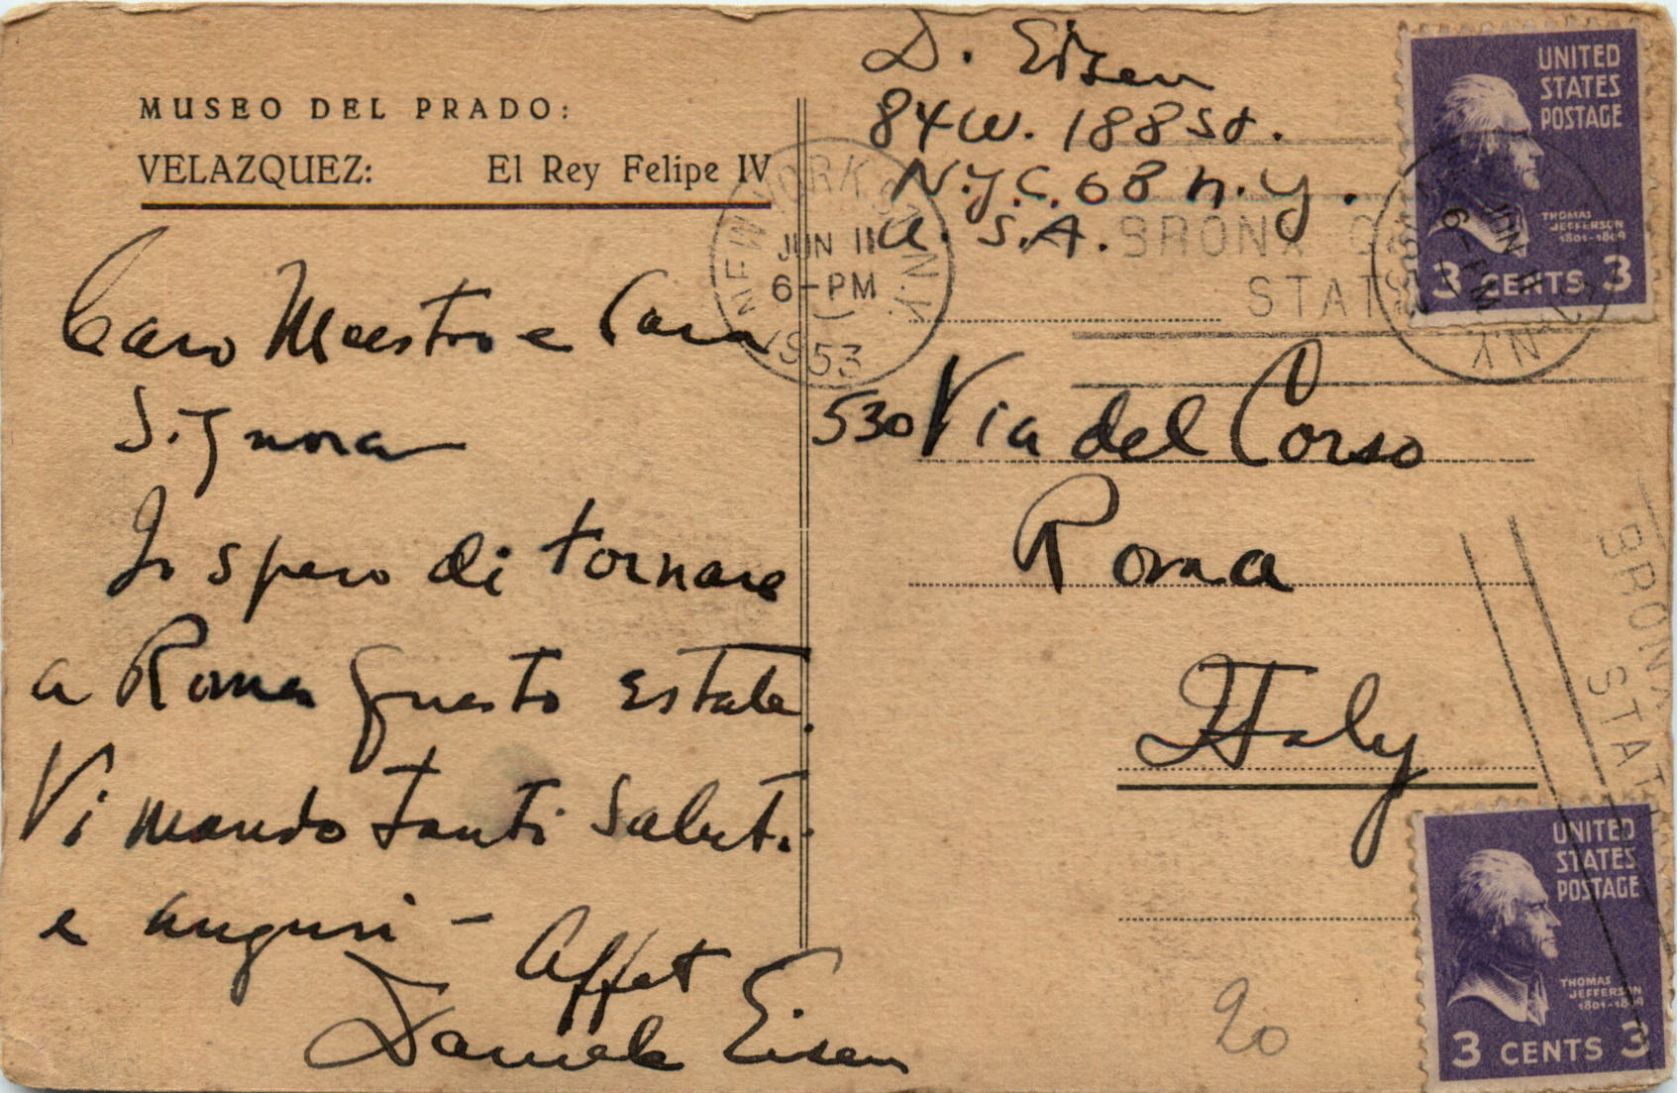 MUSEO DEL PRADO:
VELAZQUEZ: El Rey Felipe IV
Caro Maestro e Cara
Signora
Io spero di tornare
a Roma questo estate.
Vi mando tanti saluti
e auguri –
Affet
Daniele Eisen
D. Eisen
84 W. 188 St.
N.Y.C. 68 N.Y.
U.S.A.
NEW YORK N.Y.
JUN 11
6-PM
1953
BRONX
STAT
530 Via del Corso
Roma
Italy
20
UNITED
STATES
POSTAGE
THOMAS
JEFFERSON
1801-1809
3 CENTS 3
JUN 11
6-PM
NY
BRONX
STAT
UNITED
STATES
POSTAGE
THOMAS
JEFFERSON
1801-1809
3 CENTS 3